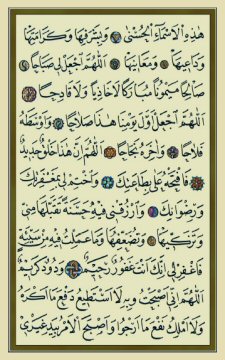 هَذِهِ الْاَسْمَآءِ الْحُسْنٰى وَبِشَرَفِهَا وَكَرَامَتِهَا
وَمَعَانِيهَا اَللّٰهُمَّ اجْعَلْ لِى صَبَاحًا
صَالِحًا مَيْمُونًا مُبَارَكًا لَا خَازِيًا وَلَا قَادِحًا
اَللّٰهُمَّ اجْعَلْ اَوَّلَ يَوْمِنَا هٰذَا صَلَاحًا وَاَوْسَطَهُ
فَلَاحًا وَاٰخِرَهُ نَجَاحًا اَللّٰهُمَّ اِنَّ هٰذَا خَلْقٌ جَدِيدٌ
فَافْتَحْهُ عَلَىَّ بِطَاعَتِكَ وَاخْتِمْ لِى بِمَغْفِرَتِكَ
وَرِضْوَانِكَ وَارْزُقْنِى فِيهِ حَسَنَةً تَقَبَّلْهَا مِنِّى
وَتُزَكِّيهَا وَتُضَعِّفُهَا وَمَا عَمِلْتُ فِيهِ مِنْ سَيِّئَةٍ
فَاغْفِرْ لِى اِنَّكَ اَنْتَ غَفُورٌ رَحِيمٌ وَدُودٌ كَرِيمٌ
اَللّٰهُمَّ اِنِّى اَصْبَحْتُ لَا اَسْتَطِيعُ دَفْعَ مَا اَكْرَهُ
وَلَا اَمْلِكُ نَفْعَ مَا اَرْجُوا وَاَصْبَحَ الْاَمْرُ بِيَدِ غَيْرِى